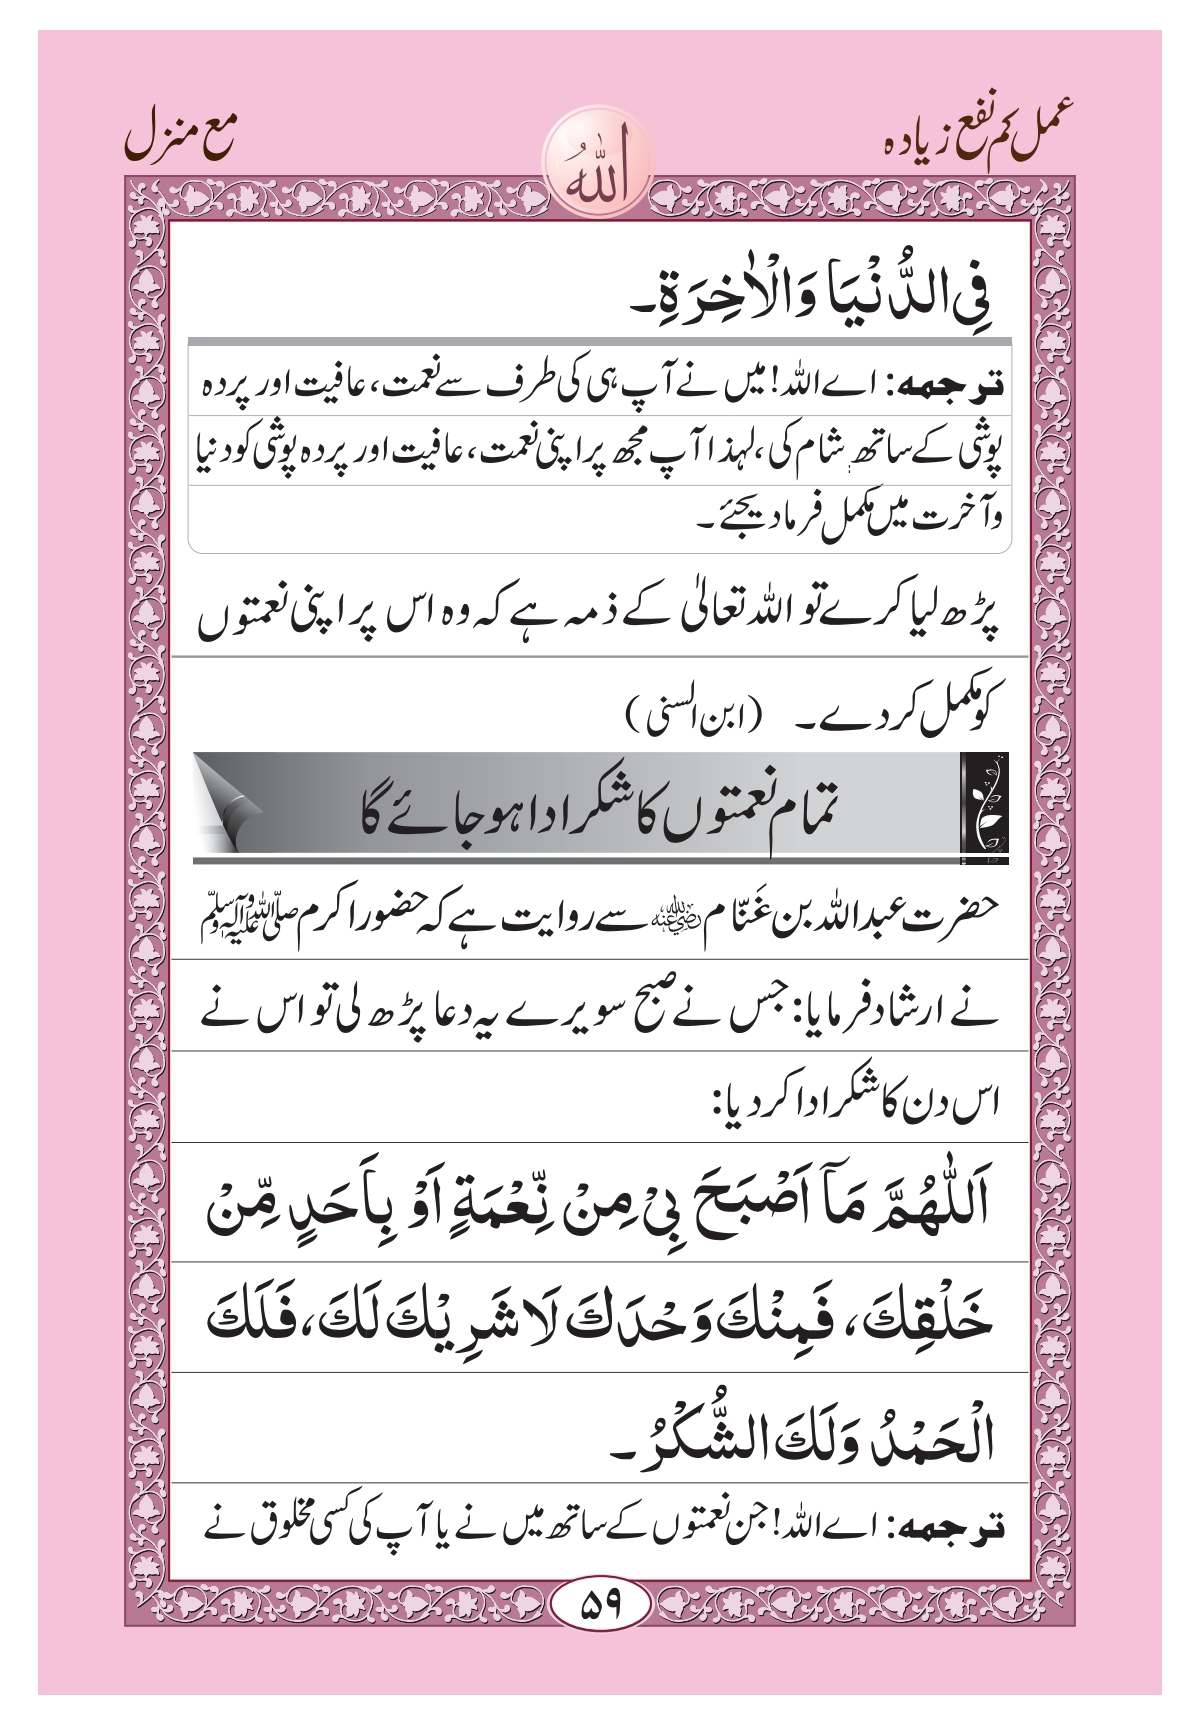 عمل کم نفع زیادہ
اللہ
مع منزل
فِی الدُّنْیَا وَالْاٰخِرَةِ۔
ترجمہ: اے اللہ! میں نے آپ ہی کی طرف سے نعمت، عافیت اور پردہ
پوشی کے ساتھ شام کی، لہٰذا آپ مجھ پر اپنی نعمت، عافیت اور پردہ پوشی کو دنیا
و آخرت میں مکمل فرما دیجئے۔
پڑھ لیا کرے تو اللہ تعالیٰ کے ذمہ ہے کہ وہ اس پر اپنی نعمتوں
کو مکمل کر دے۔ (ابن السنی)
تمام نعمتوں کا شکر ادا ہو جائے گا
حضرت عبد اللہ بن غَنَّام رضی اللہ عنہ سے روایت ہے کہ حضور اکرم صلی اللہ علیہ وآلہ وسلم
نے ارشاد فرمایا: جس نے صبح سویرے یہ دعا پڑھ لی تو اس نے
اس دن کا شکر ادا کر دیا:
اَللّٰهُمَّ مَآ اَصْبَحَ بِیْ مِنْ نِّعْمَةٍ اَوْ بِاَحَدٍ مِّنْ
خَلْقِكَ، فَمِنْكَ وَحْدَكَ لَا شَرِیْكَ لَكَ، فَلَكَ
الْحَمْدُ وَلَكَ الشُّكْرُ۔
ترجمہ: اے اللہ! جن نعمتوں کے ساتھ میں نے یا آپ کی کسی مخلوق نے
۵۹